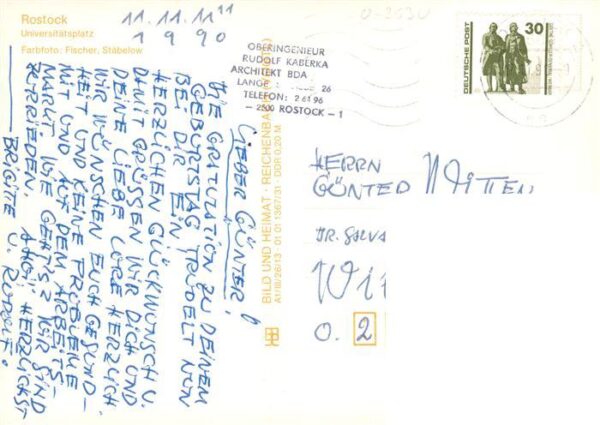 Rostock
Universitätsplatz
Farbfoto: Fischer, Stäbelow
11.11.11 11
1990
O-2530
OBERINGENIEUR
RUDOLF KABERKA
ARCHITEKT BDA
LANGE 26
TELEFON: 2 61 96
- 2500 ROSTOCK - 1
DEUTSCHE POST
30
LIEBER GÜNTER!
DIE GRATULATION ZU DEINEM
GEBURTSTAG TRUDELT NUN
BEI DIR EIN!
HERZLICHEN GLÜCKWUNSCH U.
DAMIT GRÜSSEN WIR DICH UND
DEINE LIEBE LORE HERZLICH
WIR WÜNSCHEN EUCH GESUND-
HEIT UND KEINE PROBLEME
MIT UND AUF DEM ARBEITS-
MARKT. WIE GEHT'S? WIR SIND
ZUFRIEDEN. AHOI! HERZLICHST
BRIGITTE U. RUDOLF.
BILD UND HEIMAT · REICHENBACH
A1/B/26/13 01 01 13 67/31 · DDR 0,20 M
HERRN
GÜNTER
DR. SALVA
WIT
O. 2